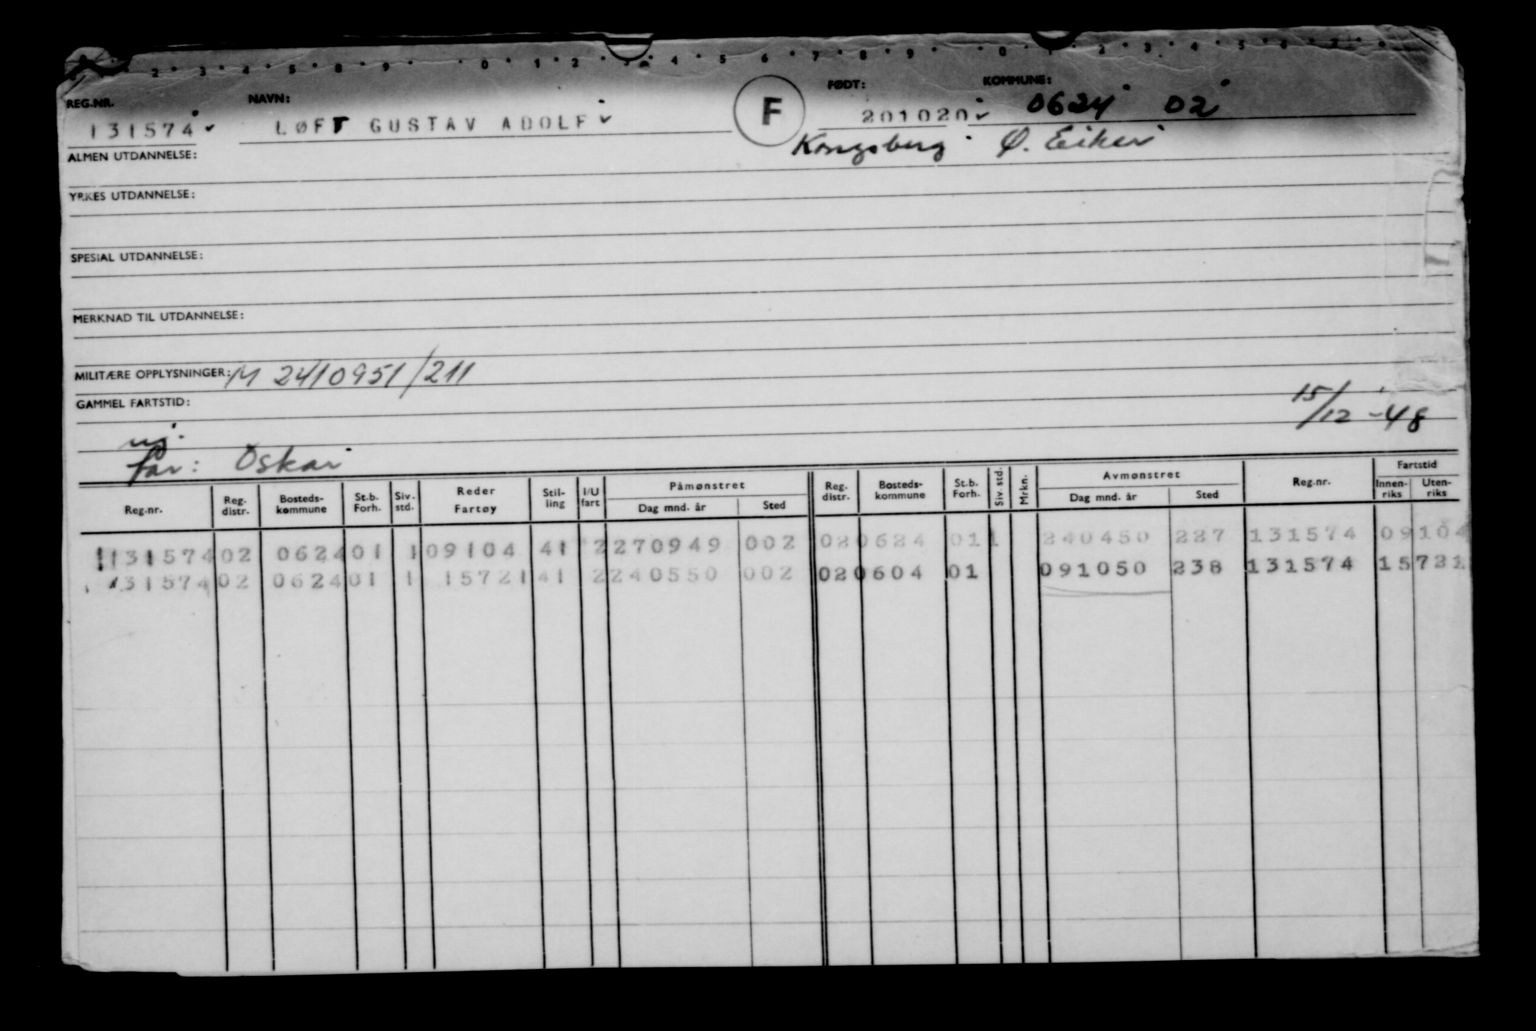 2 3 4 5 8 9 0 1 2 4 5 6 7 8 9 0 2 3 4 5 6 7
REG.NR. NAVN: FØDT: KOMMUNE:
131574 LØFT GUSTAV ADOLF F 201020 0624 02
Kongsberg Ø. Eiker
ALMEN UTDANNELSE:
YRKES UTDANNELSE:
SPESIAL UTDANNELSE:
MERKNAD TIL UTDANNELSE:
MILITÆRE OPPLYSNINGER: M 2410951/211
GAMMEL FARTSTID: 15/12-48
Far: Oskar
Reg.nr. Reg. distr. Bosteds- kommune St.b. Forh. Siv. std. Reder Fartøy Stil- ling I/U fart Påmønstret Dag mnd. år Sted Reg. distr. Bosteds- kommune St.b. Forh. Siv. std. Mrkn. Avmønstret Dag mnd. år Sted Reg.nr. Fartstid Innen- riks Uten- riks
131574 02 0624 01 1 09104 41 2 270949 002 02 0624 01 1 240450 227 131574 09104
131574 02 0624 01 1 15721 41 2 240550 002 02 0604 01 091050 238 131574 15721